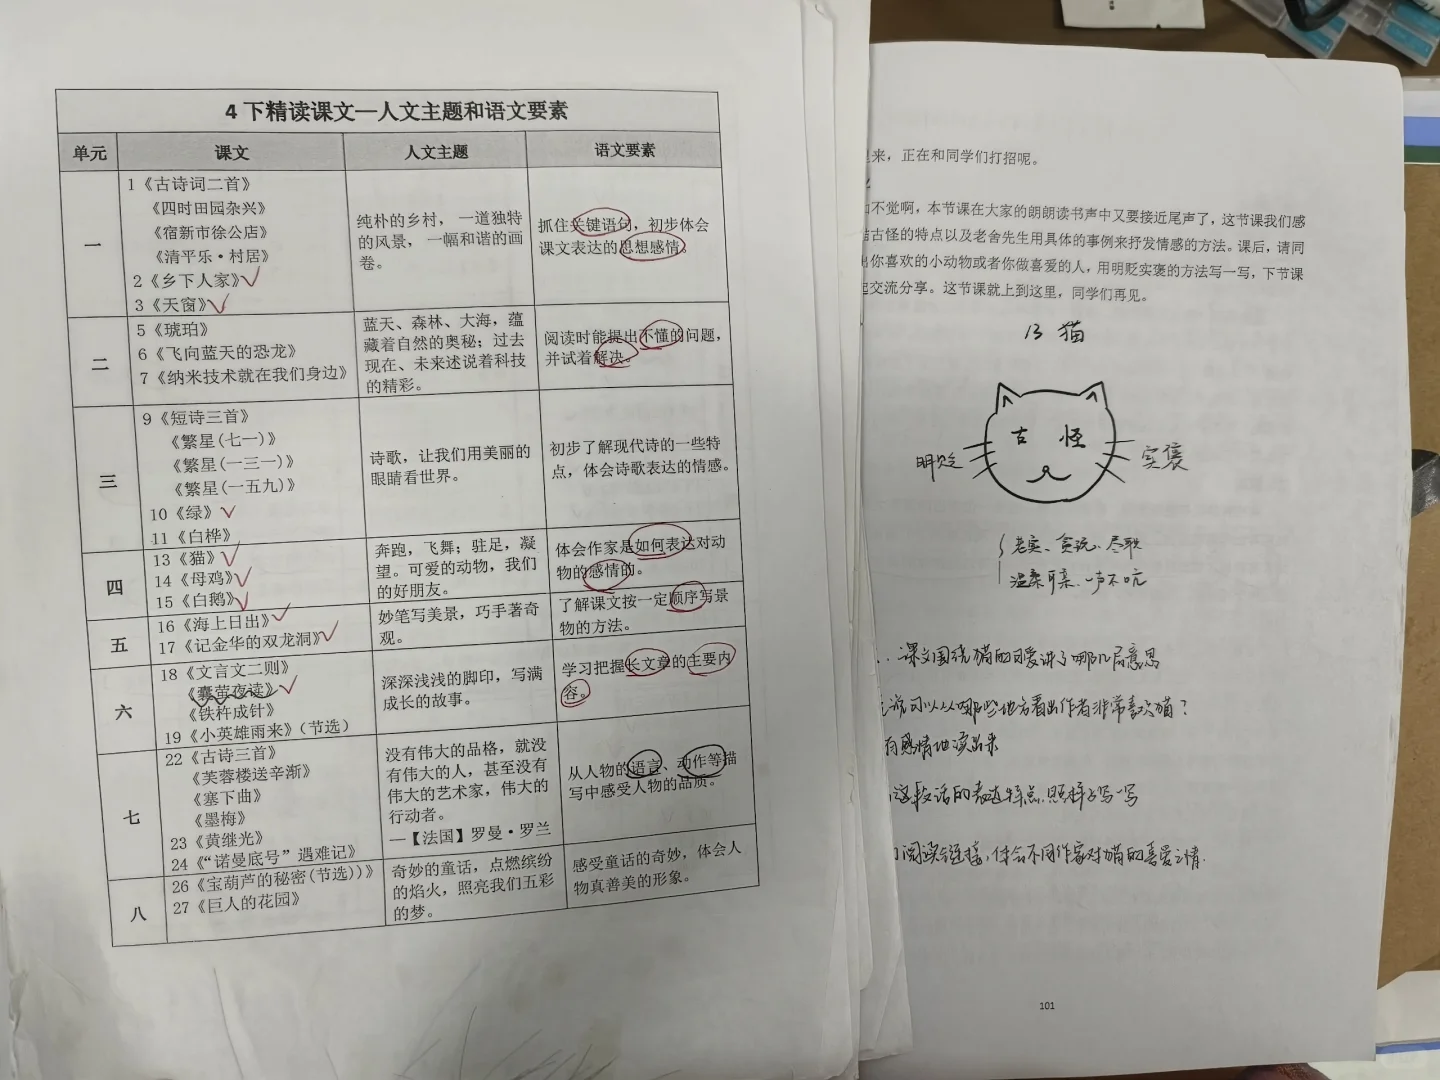 4下精读课文—人文主题和语文要素
单元 课文 人文主题 语文要素
一
1《古诗词二首》
《四时田园杂兴》
《宿新市徐公店》
《清平乐·村居》
2《乡下人家》
3《天窗》
纯朴的乡村，一道独特
的风景，一幅和谐的画
卷。
抓住关键语句，初步体会
课文表达的思想感情。
二
5《琥珀》
6《飞向蓝天的恐龙》
7《纳米技术就在我们身边》
蓝天、森林、大海，蕴
藏着自然的奥秘；过去
现在、未来述说着科技
的精彩。
阅读时能提出不懂的问题，
并试着解决。
三
9《短诗三首》
《繁星(七一)》
《繁星(一三一)》
《繁星(一五九)》
10《绿》
11《白桦》
诗歌，让我们用美丽的
眼睛看世界。
初步了解现代诗的一些特
点，体会诗歌表达的情感。
四
13《猫》
14《母鸡》
15《白鹅》
奔跑，飞舞；驻足，凝
望。可爱的动物，我们
的好朋友。
体会作家是如何表达对动
物的感情的。
五
16《海上日出》
17《记金华的双龙洞》
妙笔写美景，巧手著奇
观。
了解课文按一定顺序写景
物的方法。
六
18《文言文二则》
《囊萤夜读》
《铁杵成针》
19《小英雄雨来》（节选）
深深浅浅的脚印，写满
成长的故事。
学习把握长文章的主要内
容。
七
22《古诗三首》
《芙蓉楼送辛渐》
《塞下曲》
《墨梅》
23《黄继光》
24《“诺曼底号”遇难记》
没有伟大的品格，就没
有伟大的人，甚至没有
伟大的艺术家，伟大的
行动者。
—【法国】罗曼·罗兰
从人物的语言、动作等描
写中感受人物的品质。
八
26《宝葫芦的秘密(节选)）》
27《巨人的花园》
奇妙的童话，点燃缤纷
的焰火，照亮我们五彩
的梦。
感受童话的奇妙，体会人
物真善美的形象。
来，正在和同学们打招呢。
不觉啊，本节课在大家的朗朗读书声中又要接近尾声了，这节课我们感
古怪的特点以及老舍先生用具体的事例来抒发情感的方法。课后，请同
你喜欢的小动物或者你做喜爱的人，用明贬实褒的方法写一写，下节课
交流分享。这节课就上到这里，同学们再见。
13 猫
古怪
明贬
实褒
老实、贪玩、尽职
温柔可亲、一声不吭
课文围绕猫的可爱讲了哪几层意思
说可以从哪些地方看出作者非常喜欢猫？
有感情地读出来
这段话的表达特点，照样子写一写
阅读链接，体会不同作家对猫的喜爱之情.
101